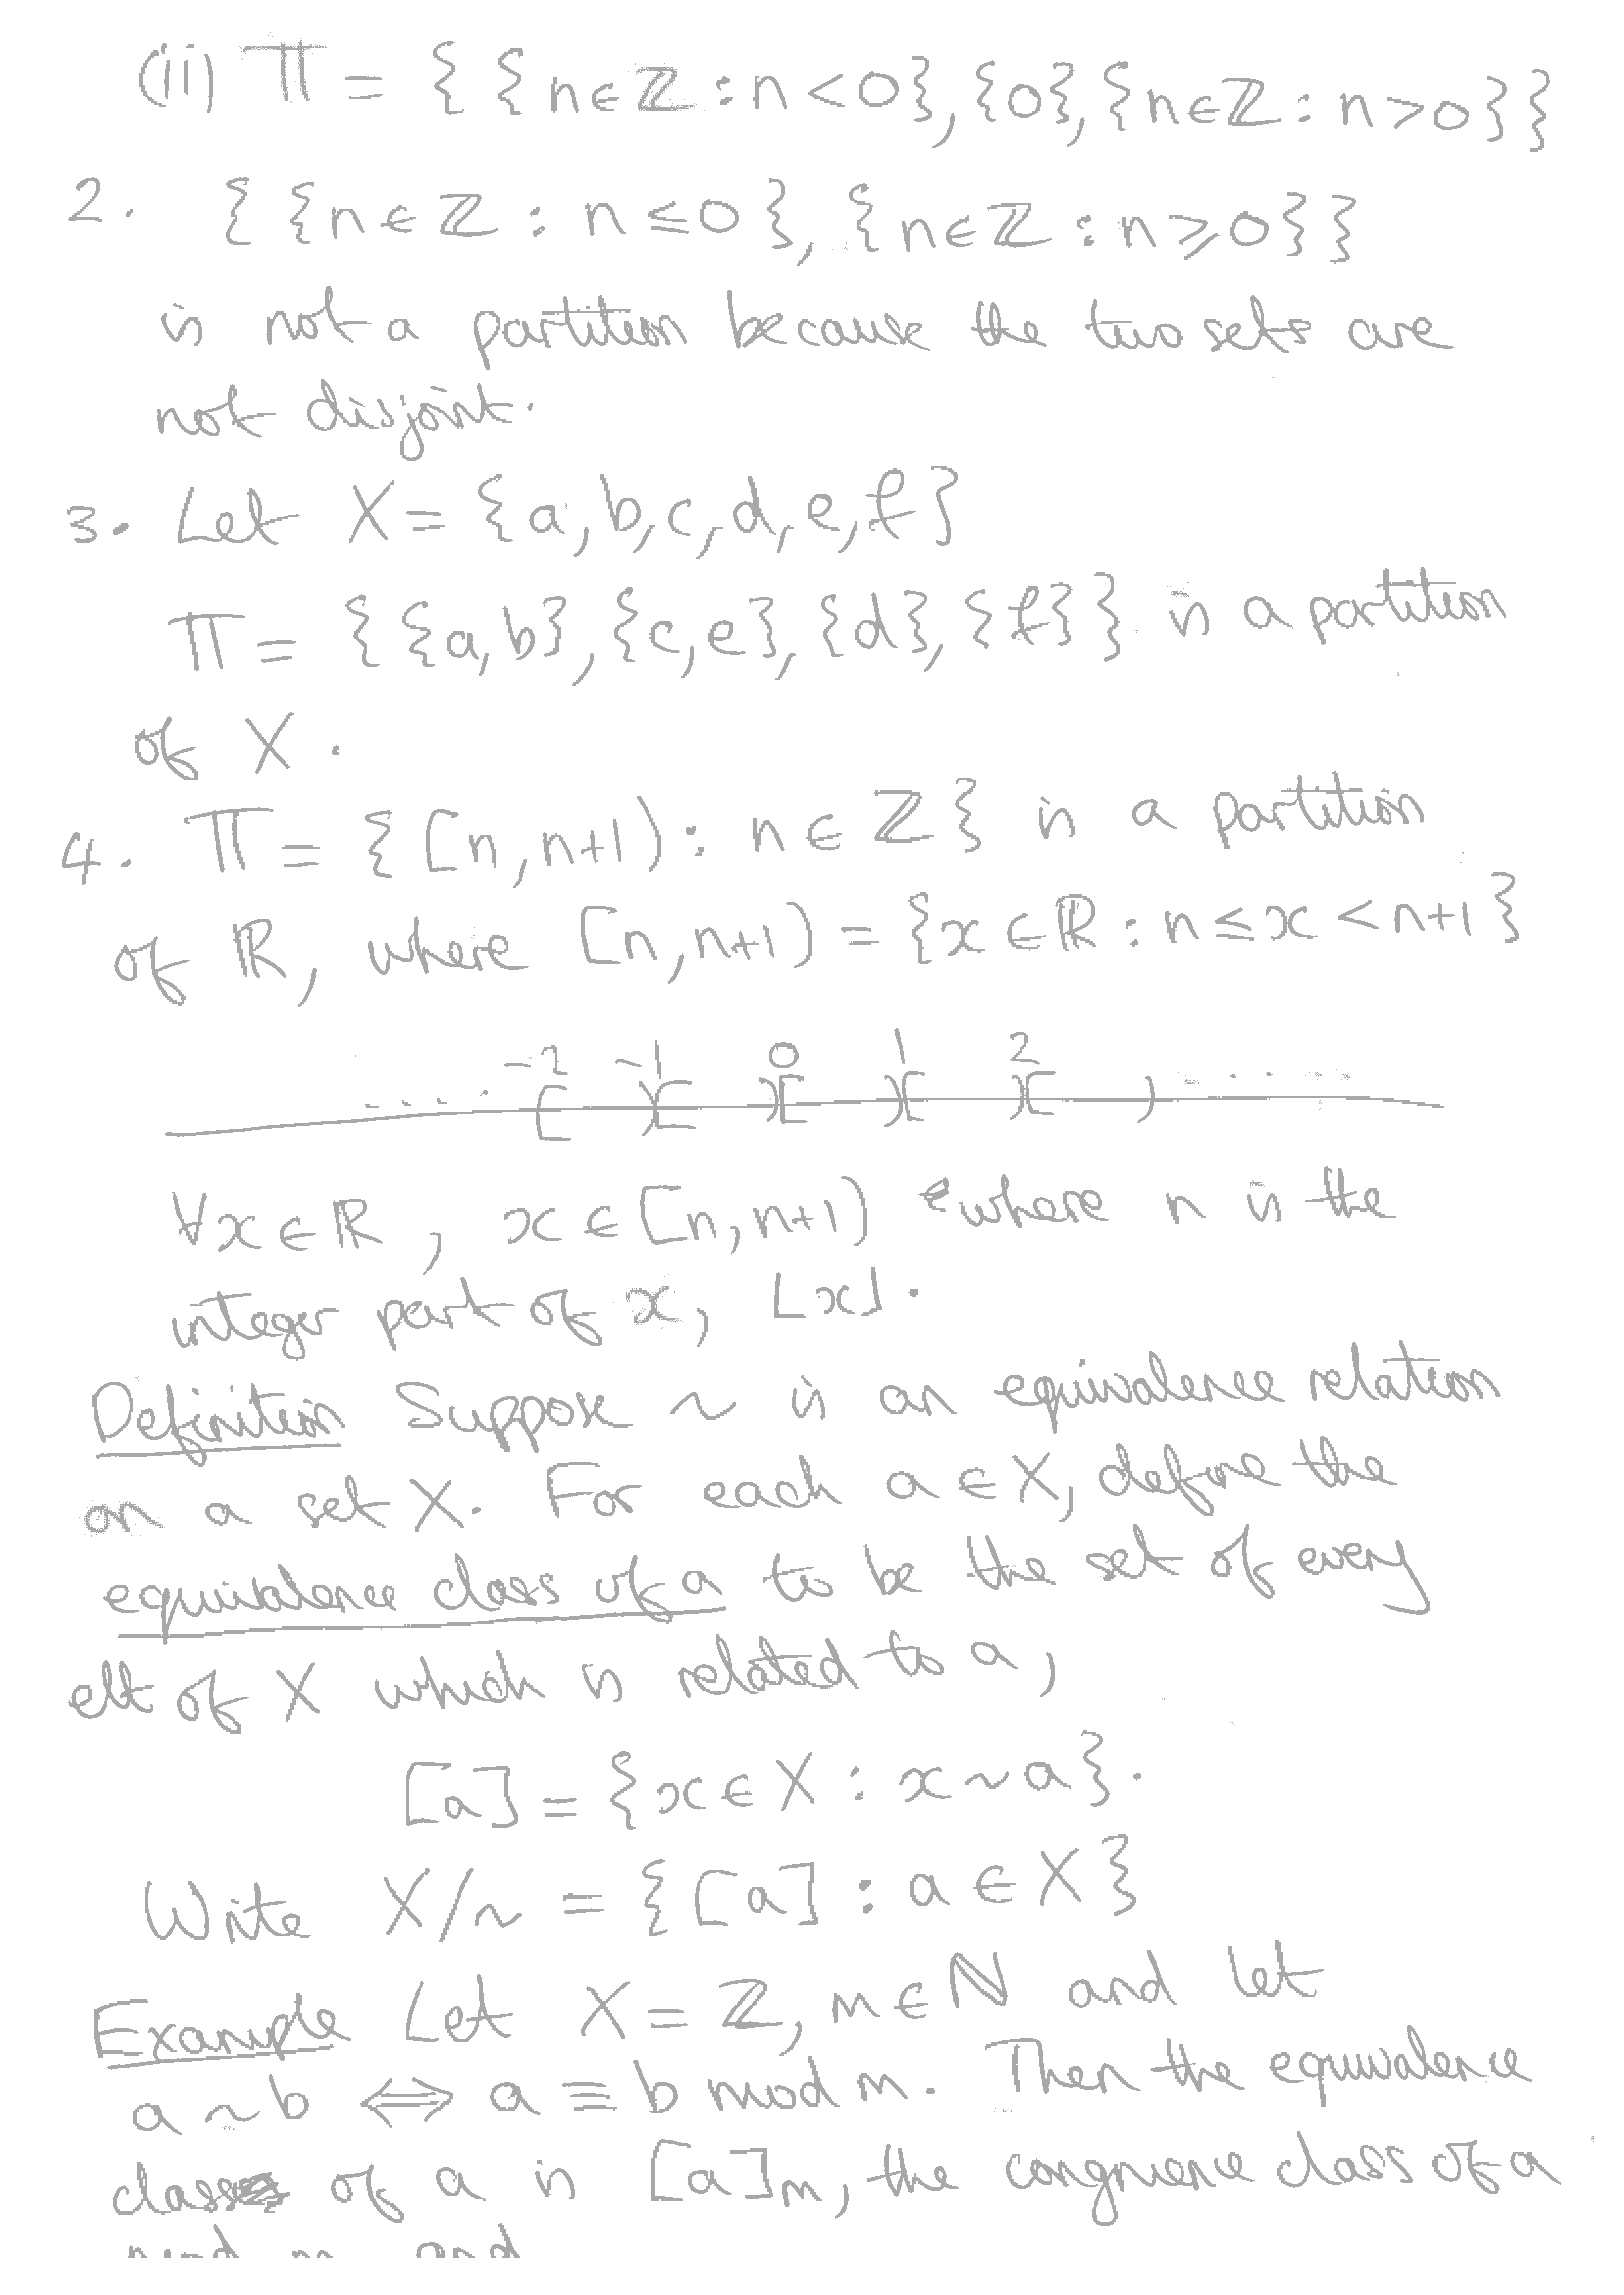 (ii) Π = { {n∈ℤ : n<0}, {0}, {n∈ℤ : n>0} }
2. { {n∈ℤ : n≤0}, {n∈ℤ : n≥0} }
is not a partition because the two sets are
not disjoint.
3. Let X = {a, b, c, d, e, f}
Π = { {a,b}, {c,e}, {d}, {f} } is a partition
of X.
4. Π = { [n, n+1) : n∈ℤ } is a partition
of ℝ, where [n, n+1) = {x∈ℝ : n≤x<n+1}
-2 -1 0 1 2
.... [ )[ )[ )[ )[ ) ......
∀x∈ℝ, x∈[n, n+1) where n is the
integer part of x, ⌊x⌋.
Definition Suppose ~ is an equivalence relation
on a set X. For each a∈X, define the
equivalence class of a to be the set of every
elt of X which is related to a,
[a] = {x∈X : x~a}.
Write X/~ = {[a] : a∈X}
Example Let X = ℤ, m∈ℕ and let
a~b ⇔ a ≡ b mod m. Then the equivalence
class of a is [a]m, the congruence class of a
mod m and